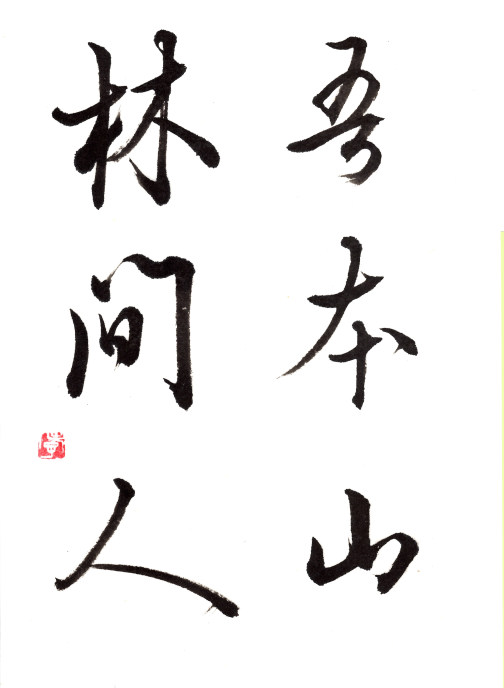 吾本山
林间人